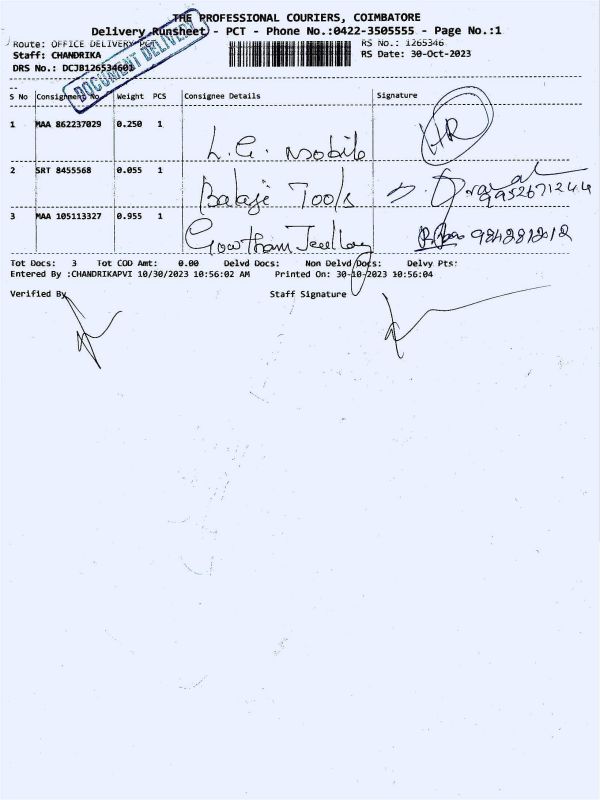 THE PROFESSIONAL COURIERS, COIMBATORE
Delivery Runsheet - PCT - Phone No.:0422-3505555 - Page No.:1
Route: OFFICE DELIVERY PCT
RS No.: 1265346
Staff: CHANDRIKA
RS Date: 30-Oct-2023
DRS No.: DCJB126534601
DOCUMENT DELIVERY
S No Consignment No. Weight PCS Consignee Details Signature
1 MAA 862237029 0.250 1
L.G. mobile
HR
2 SRT 8455568 0.055 1
Balaji Tools
9952671244
3 MAA 105113327 0.955 1
Gowtham
9842812012
Tot Docs: 3 Tot COD Amt: 0.00 Delvd Docs: Non Delvd Docs: Delvy Pts:
Entered By :CHANDRIKAPVI 10/30/2023 10:56:02 AM Printed On: 30-10-2023 10:56:04
Verified By
Staff Signature